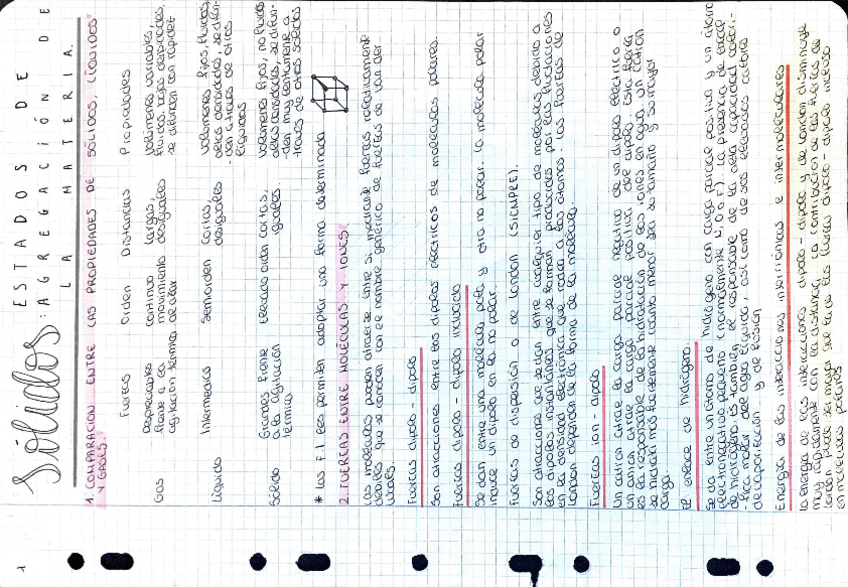 1
Sólidos: ESTADOS DE
AGREGACIÓN DE
LA MATERIA.
1. COMPARACIÓN ENTRE LAS PROPIEDADES DE SÓLIDOS, LÍQUIDOS
Y GASES.
Fuerzas Orden Distancias Propiedades
Gas Despreciables frente a la agitación térmica continuo movimiento al azar Largas, desiguales Volúmenes variables, fluidos, bajas densidades, se difunden con rapidez
Líquido Intermedias Semiorden Cortas, desiguales Volúmenes fijos, fluidos, altas densidades, se difun-den a través de otros líquidos
Sólido Grandes frente a la agitación térmica Elevado orden Cortas, iguales Volúmenes fijos, no fluidos altas densidades, se difun-den muy lentamente a través de otros sólidos
* Las F.I. les permiten adoptar una forma determinada
2. FUERZAS ENTRE MOLÉCULAS Y IONES.
Las moléculas pueden atraerse entre sí mediante fuerzas relativamente
débiles que se conocen con el nombre genérico de fuerzas de van der
Waals.
Fuerzas dipolo - dipolo
Son atracciones entre los dipolos eléctricos de moléculas polares.
Fuerzas dipolo - dipolo inducido
Se dan entre una molécula polar y otra no polar. La molécula polar
induce un dipolo en la no polar.
Fuerzas de dispersión o de London (SIEMPRE).
Son atracciones que se dan entre cualquier tipo de moléculas debido a
los dipolos instantáneos que se forman producidos por las fluctuaciones
en la densidad electrónica que rodea a los átomos. Las fuerzas de
London dependen de la forma de la molécula
Fuerzas ion - dipolo
Un catión atrae la carga parcial negativa de un dipolo eléctrico o
un anión atrae la carga parcial positiva del dipolo. Esta fuerza
es la responsable de la hidratación de los iones en agua. Un catión
se hidrata más fuertemente cuanto menor sea su tamaño y su mayor
carga.
El enlace de hidrógeno.
Se da entre un átomo de hidrógeno con carga parcial positiva y un átomo
electronegativo pequeño (normalmente N, O o F). La presencia de enlace
de hidrógeno es también el responsable de la alta capacidad calorí-
-fica molar del agua líquida, así como de sus elevados calores
de vaporización y de fusión
Energía de las interacciones interiónicas e intermoleculares
La energía de las interacciones dipolo - dipolo y de London disminuye
muy rápidamente con la distancia. La contribución de las fuerzas de
London puede ser mayor que la de las fuerzas dipolo - dipolo incluso
en moléculas polares